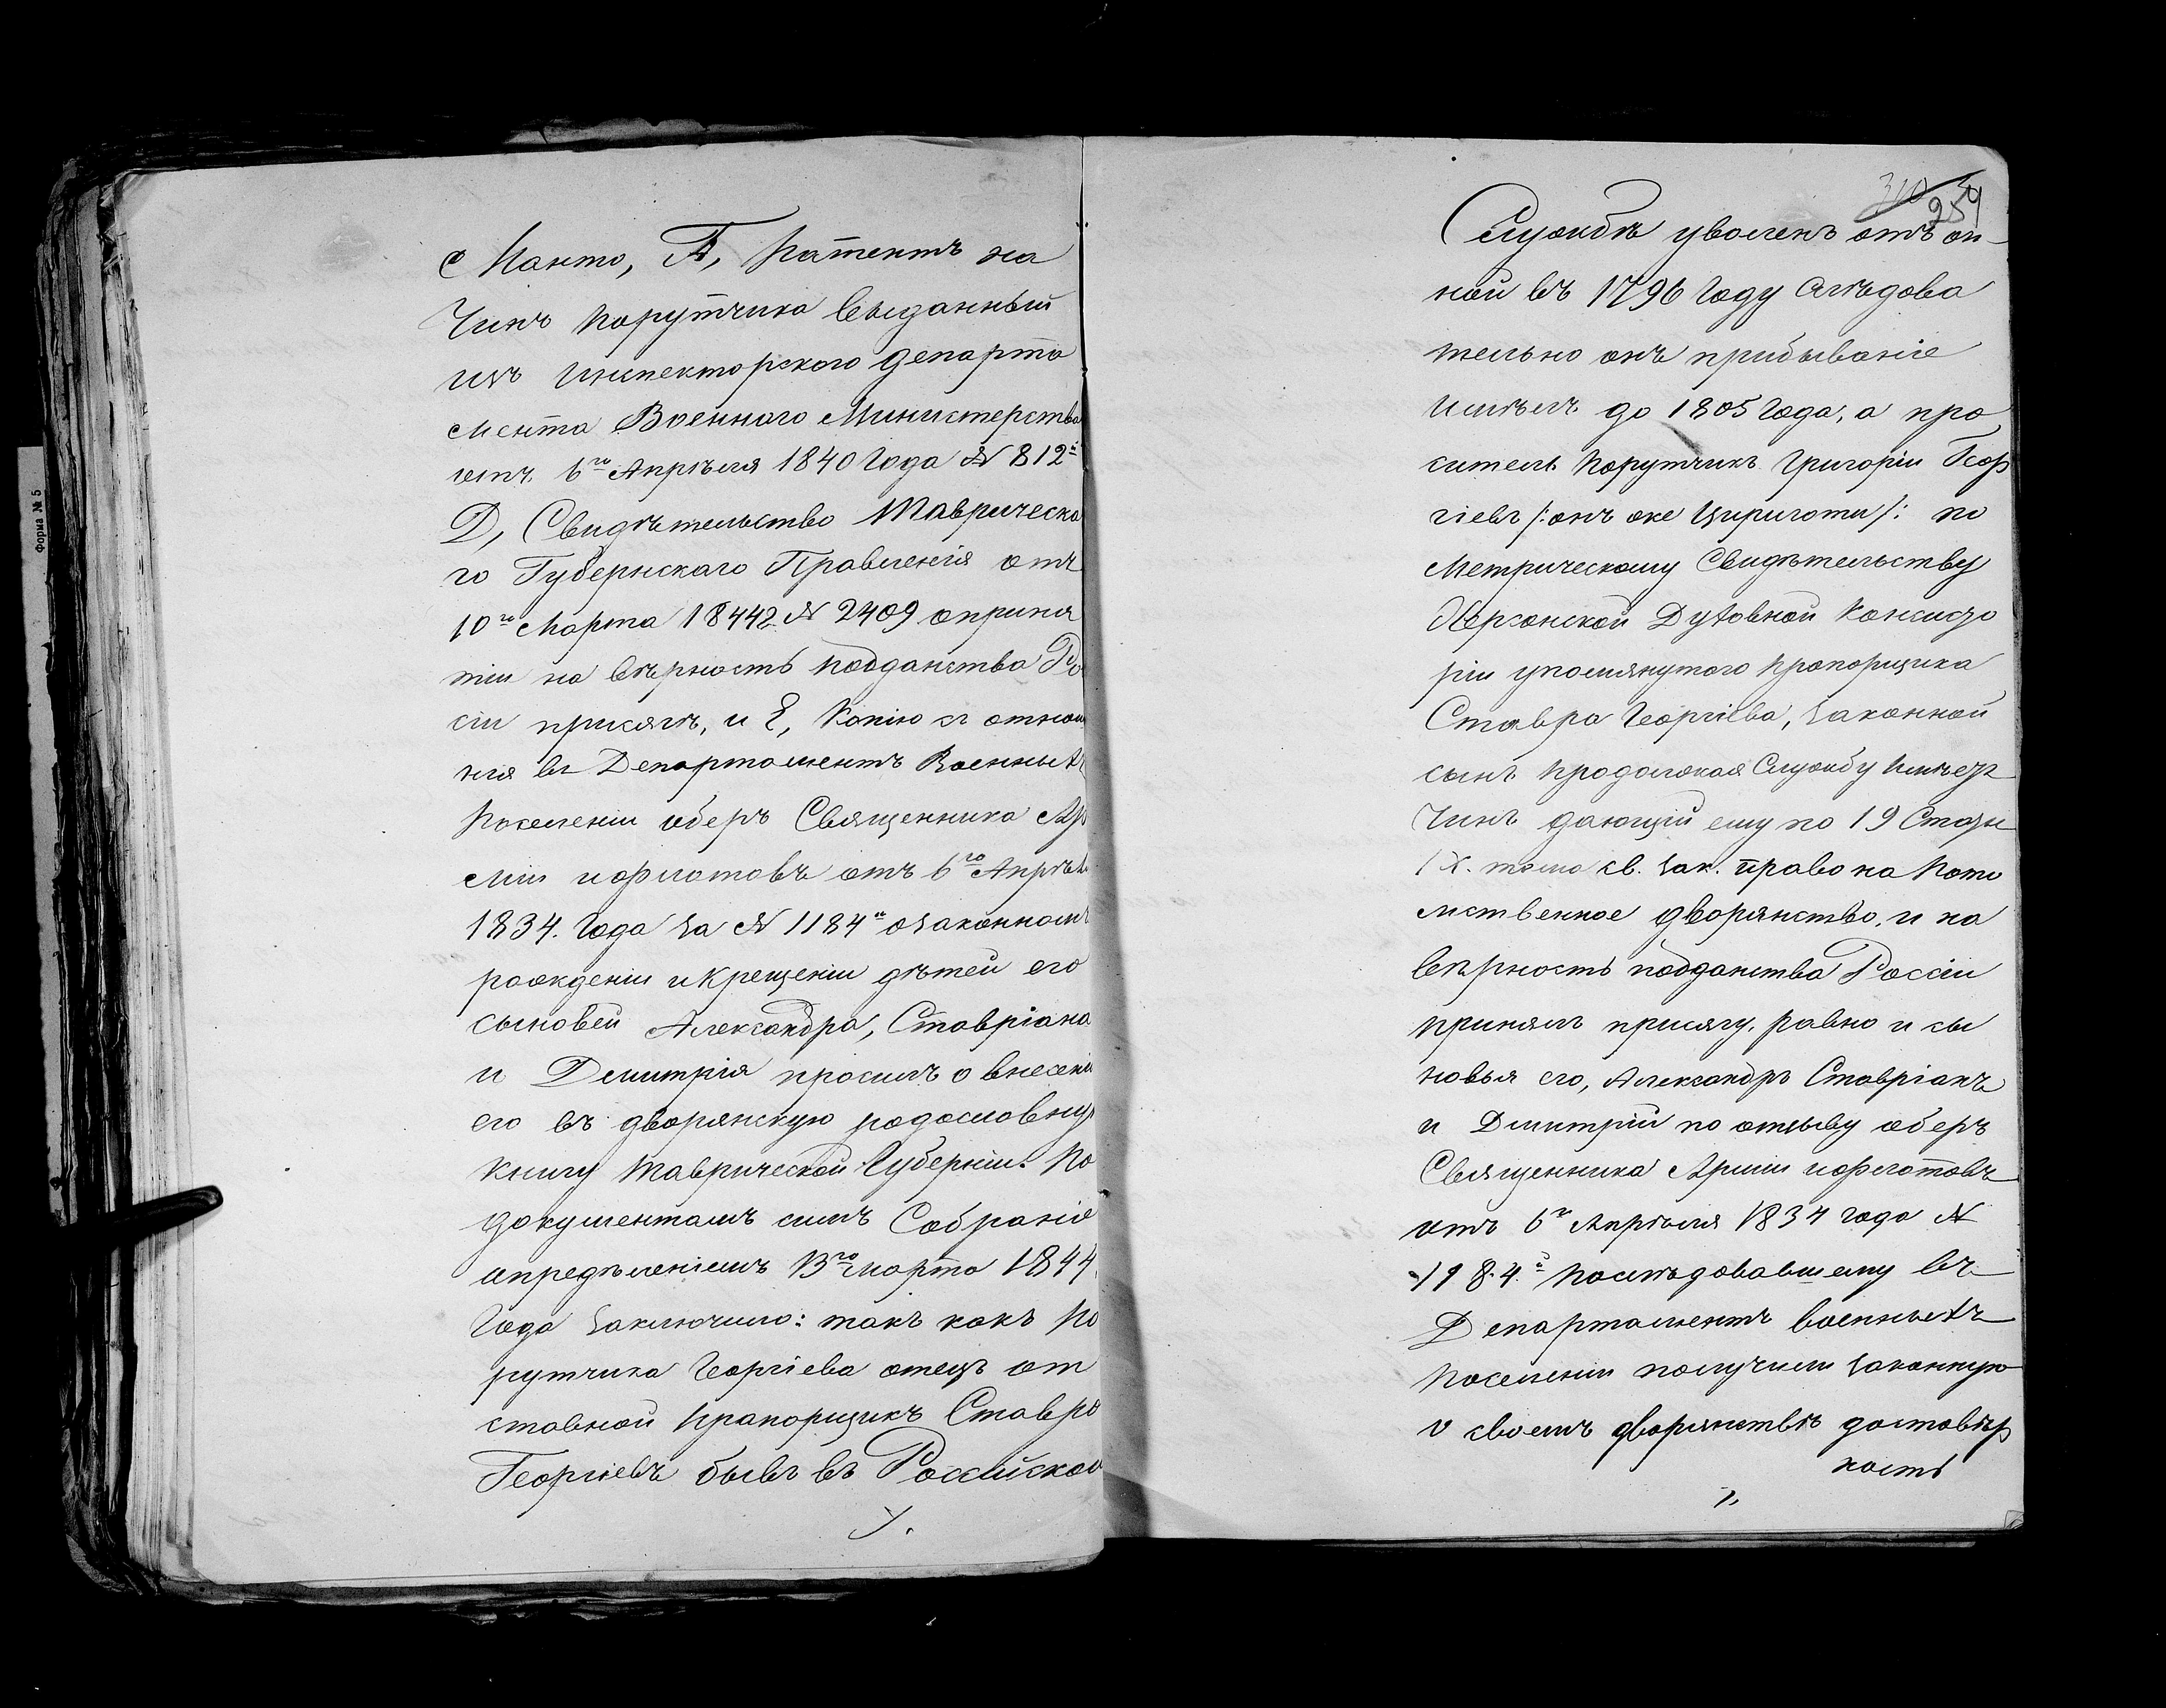 с Манто, Г, Патентъ на
Чинъ порутчика выданный
изъ инспекторского департа
мента Военного Министерства
отъ 6го Апрѣля 1840 Года № 812й
Д, Свидѣтельство Таврическа
го Губернскаго Правленія отъ
10го Марта 1844г. № 2409 о приня
тіи на вѣрность подданства Ро
сіи присягѣ, и Е, Копію съ отноше
нія въ Департаментъ Военныхъ
поселеніи оберъ Священника Ар
міи и флотовъ отъ 6го Апрѣля
1834. Года за № 1184й о законномъ
рожденіи и крещеніи дѣтей его
сыновей Александра, Ставріана
и Дмитрія просилъ о внесеніи
его въ дворянскую родословную
книгу Таврической Губерніи. По
документамъ симъ Собраніе
опредѣленіемъ 13го марта 1844.
Года заключило: такъ какъ по
рутчика Георгіева отецъ от
ставной прапорщикъ Ставро
Георгіевъ бывъ въ Россійской
310
259
Службѣ уволенъ отъ он
ной въ 1796 Году слѣдова
тельно онъ прибываніе
имѣлъ до 1805 Года, а про
ситель порутчикъ Григоріи Геор
гіевъ /: онъ же Цириготи /: по
Метрическому Свидѣтельству
Херсонской Духовной Консисто
ріи упомянутого прапорщика
Ставра Георгіева, законной
сынъ продолжая Службу имѣетъ
Чинъ дающій ему по 19 Статьи
IX. тома св. зак. право на пото
мственное дворянство, и на
вѣрность подданства Россіи
принялъ присягу, равно и сы
новья его, Александръ Ставріанъ
и Дмитрій по отзыву оберъ
Священника Арміи и флотовъ
отъ 6го Апрѣля 1834 года №
1184.й послѣдовавшему въ
Департаментъ военныхъ
поселеніи получили законную
о своемъ дворянствѣ достовѣр
ность